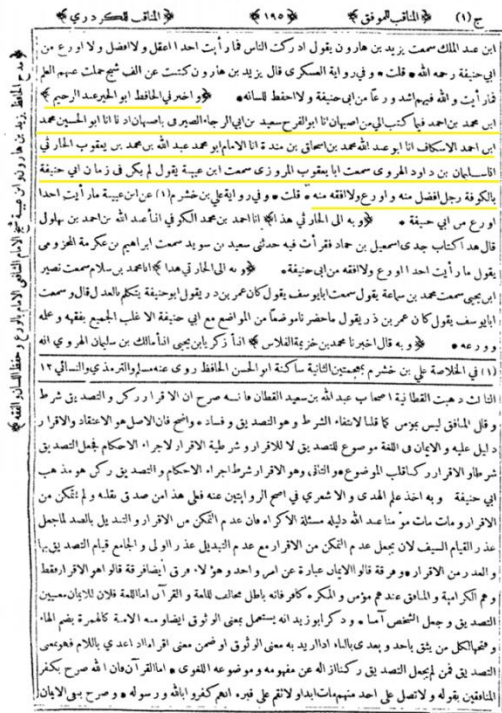 ج (١) ﴿المناقب للموفق﴾ ﴿١٩٥﴾ ﴿المناقب للكردري﴾
ابن عبد الملك سمعت يزيد بن هارون يقول ادركت الناس فما رأيت احدا اعقل ولا افضل ولا اورع من
ابي حنيفة رحمه الله • قلت • وفي رواية العسكري قال يزيد بن هارون كتبت عن الف شيخ حملت عنهم العلم
فما رأيت والله فيهم اشد ورعا من ابي حنيفة ولا احفظ للسانه • ﴿واخبرني الحافظ ابو الخير عبد الرحيم﴾
ابن محمد بن احمد فيما كتب الي من اصبهان انا ابو الفرح سعيد بن ابي الرجاء الصيرفي باصبهان اذنا انا ابو الحسين محمد
ابن احمد الاسكاف انا ابو عبد الله محمد بن اسحاق بن مندة انا الامام ابو محمد عبد الله بن محمد بن يعقوب الحارثي
انا سليمان بن داود الهروي سمعت ابا يعقوب المروزي سمعت ابن عيينة يقول لم يكن في زمان ابي حنيفة
بالكوفة رجل افضل منه واورع ولا افقه منه • قلت • وفي رواية علي بن خشرم (١) عن ابن عيينة ما رأيت احدا
اورع من ابي حنيفة • ﴿وبه الى الحارثي هذا﴾ انا احمد بن محمد الكوفي انبأ عبد الله بن احمد بن بهلول
قال هذا كتاب جدي اسمعيل بن حماد فقرأت فيه حدثني سعيد بن سويد سمعت ابراهيم بن عكرمة المخزومي
يقول ما رأيت احدا اورع ولا افقه من ابي حنيفة • ﴿وبه الى الحارثي هذا﴾ انا محمد بن سلام سمعت نصير
ابن يحيى سمعت محمد بن سماعة يقول سمعت ابا يوسف يقول كان عمر بن ذر يقول ابو حنيفة يتكلم بالعدل قال وسمعت
ابا يوسف يقول كان عمر بن ذر يقول ما حضرنا موضعا من المواضع مع ابي حنيفة الا غلب الجميع بفقهه وعلمه
وورعه • ﴿وبه قال اخبرنا محمد بن خزيمة القلاس﴾ انبأ زكريا بن يحيى انبأ مالك بن سليمان الهروي انه
(١) في الخلاصة علي بن خشرم بمعجمتين الثانية ساكنة ابو الحسن الحافظ روى عنه مسلم والترمذي والنسائي ١٢
الثالث ذهبت القطانية اصحاب عبد الله بن سعيد القطان فانه صرح ان الاقرار ركن والتصديق شرط
و قلل المنافق ليس بمؤمن كما قلنا لانتفاء الشرط وهو التصديق وفساده واضح فان الاصل هو الاعتقاد والاقرار
دليل عليه والايمان في اللغة موضوع للتصديق لا للاقرار وشرطية الاقرار لاجراء الاحكام فجعل التصديق
شرطا والاقرار ركنا قلب الموضوع • والثاني وهو الاقرار شرط اجراء الاحكام والتصديق ركن هو مذهب
ابي حنيفة وبه اخذ علم الهدى والاشعري في اصح الروايتين عنه فعلى هذا من صدق بقلبه ولم يتمكن من
الاقرار ومات مات مؤمنا عند الله دليله مسئلة الاكراه فان عدم التمكن من الاقرار والتبديل بالضد لما جعل
عذرا لقيام السيف لان يجعل عدم التمكن من الاقرار مع عدم التبديل عذرا اولى والجامع قيام التصديق بها
والعذر من الاقرار • وفرقة قالوا الايمان عبارة عن امر واحد وهؤلاء فرق ايضا فرقة قالوا هو الاقرار فقط
وهم الكرامية والمنافق عندهم مؤمن والمكره كافر فانه باطل مخالف للغة والقرآن اما اللغة فلان للايمان معنيين
التصديق وجعل الشخص آمنا • وذكر ابو زيد انه يستعمل بمعنى الوثوق ايضا ومنه الامنة كالهمزة بضم الهاء
وفتحها لكل من يثق باحد ويعدى بالباء اذا اريد به معنى الوثوق او ضمن معنى اقر اذا اعدي باللام فهو بمعنى
التصديق فمن لم يجعل التصديق ركنا ازاله عن مفهومه وموضوعه اللغوي • اما القرآن فان الله صرح بكفر
المنافقين بقوله ولا تصل على احد منهم مات ابدا ولا تقم على قبره انهم كفروا بالله ورسوله • وصرح بنفي الايمان
﴿مدح الحافظ يزيد بن هارون وابن عيينة شيخ الامام الشافعي الامام بالورع وحفظ اللسان والفقه﴾